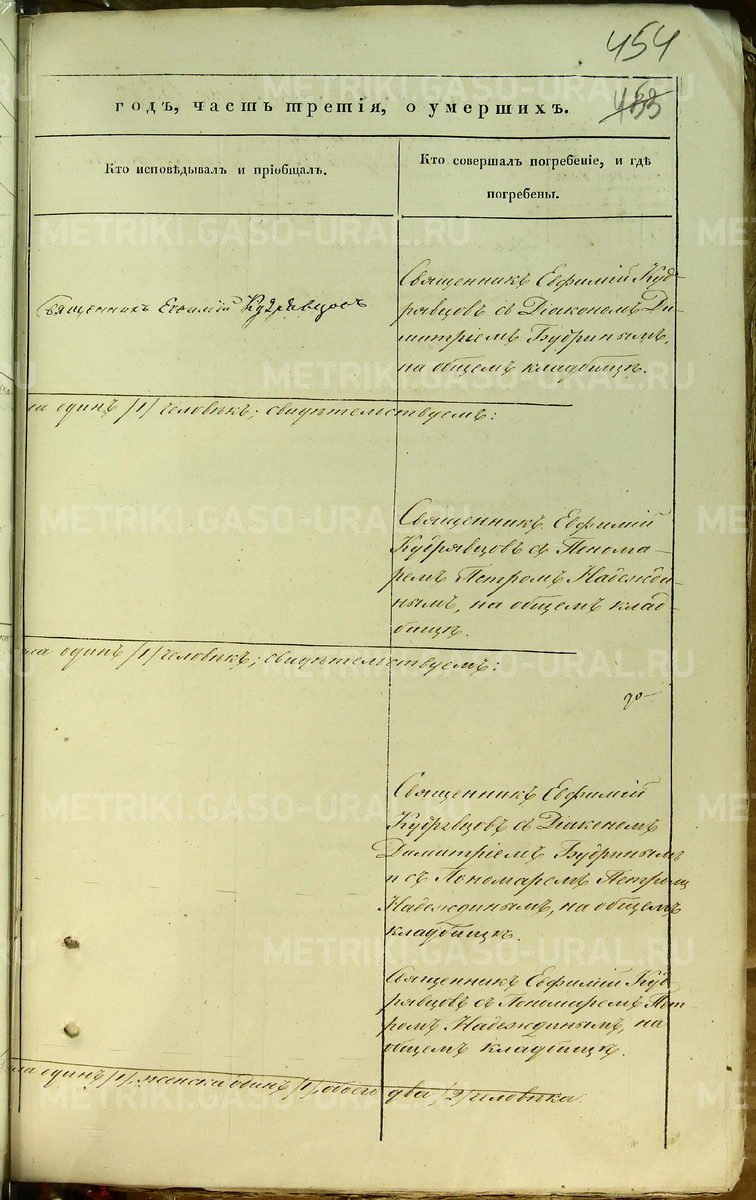 454
годъ, часть третія, о умершихъ.
453
Кто исповѣдывалъ и пріобщалъ.
Кто совершалъ погребеніе, и гдѣ
погребены.
Священникъ Евѳимій Кудрявцовъ
Священникъ Евфимій Куд-
рявцовъ съ Діакономъ Ди-
митріемъ Будринымъ,
на общемъ кладбищѣ.
ла одинъ /1/ человѣкъ; свидѣтельствуемъ:
Священникъ Евфимій
Кудрявцовъ съ Понома-
ремъ Петромъ Надежди-
нымъ, на общемъ клад-
бищѣ.
ла одинъ /1/ человѣкъ; свидѣтельствуемъ:
Священникъ Евфимій
Кудрявцовъ съ Діакономъ
Димитріемъ Будринымъ
и съ Пономаремъ Петромъ
Надеждинымъ, на общемъ
кладбищѣ.
Священникъ Евфимій Куд
рявцовъ съ Пономаремъ Пет-
ромъ Надеждинымъ, на
общемъ кладбищѣ.
ла одинъ /1/, женска одинъ /1/, обоего два /2/ человѣка.
METRIKI.GASO-URAL.RU